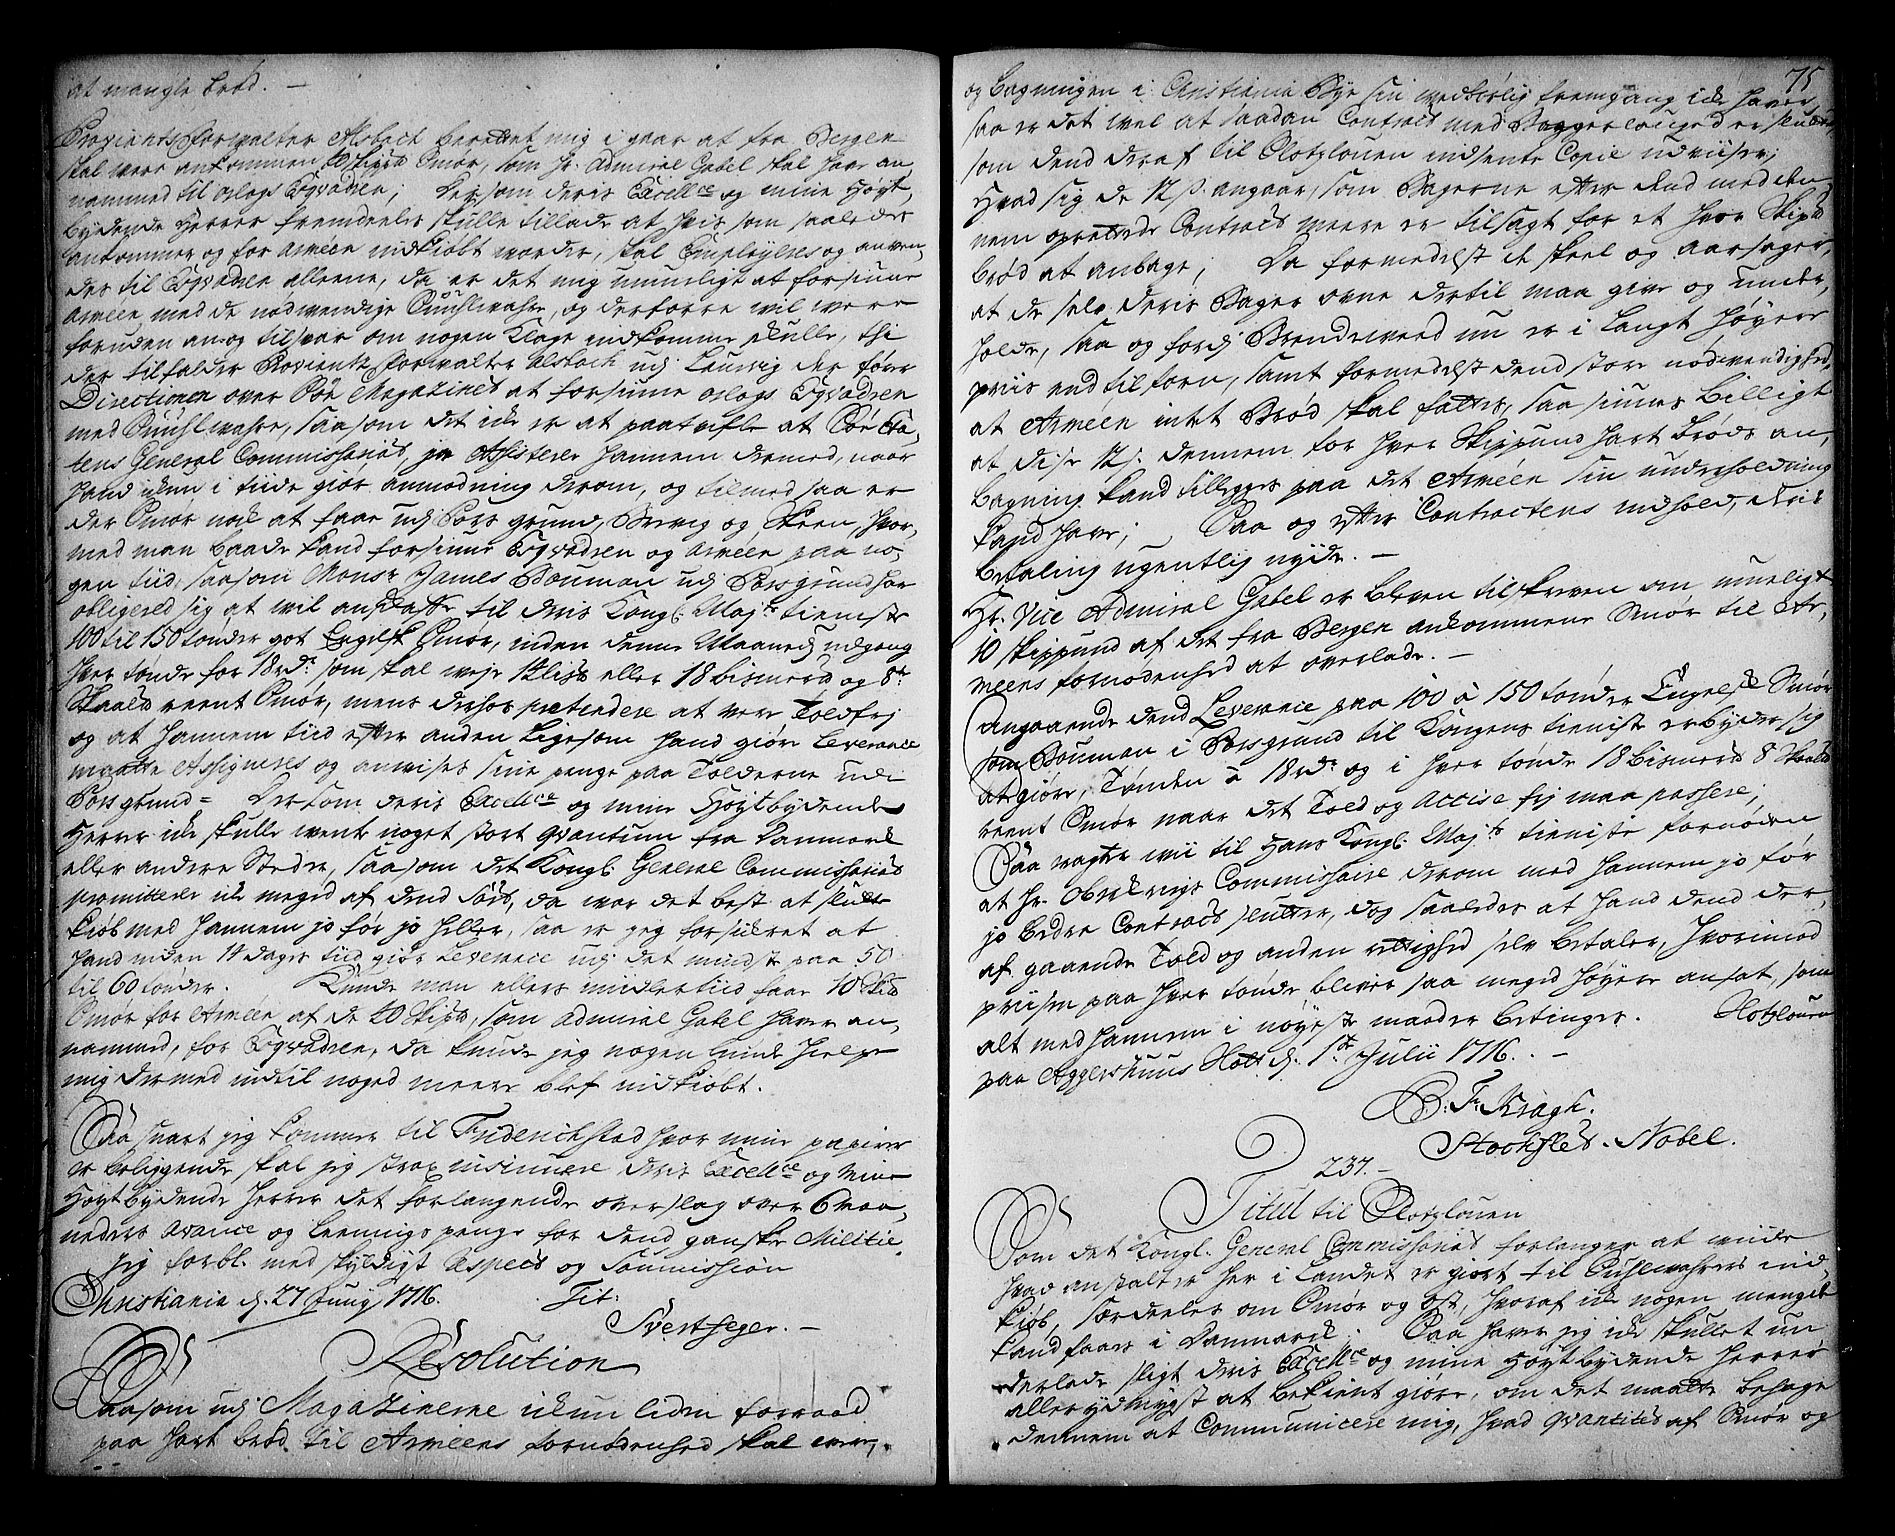 at mangle brød. —
Proviantsforvalter Alsbach berettet mig i gaar at fra Bergen
skal være ankommen Smør, som Hr. Admiral Gabel skal have an,
nammed til orlogs Esqvadren; Dersom deris Excellce og mine Høyt,
bydende Herrer fremdeeles skulle tillade at hvis som saaledes
ankommer og for Armeen indkiøbt worder, skal Employeres og anven,
des til Esqvadren alleene, da er det mig umueligt at forsiune
Armeen med de nødwendige Pudselwahre, og derforre wil were
foruden an og tilswar om nogen Klage indkomme skulle, thi
det tilfalder Provientz forwalter Alsbach udj Laurwig der fører
Directionen over Søe Magazinet at forsiune orlogs Esqvadren
med Pudselwahre, saasom det icke er at paatvifle at Søe Eta,
tens General Commissariat, jo Assisterer hannem dermed, naar
hand ikun i tiide giør anmodning derom, og tilmed saa er
der Smør nock at faae udj Pors grund, Brevig og Skeen, hvor,
med man baade kand forsiune Esqvadren og Armeen paa no,
gen tiid, saasom Monsr James Bouman udj Porsgrund har
obligered sig at wil anskaffe til deris Kongl. Majts tieniste
100 til 150 tønder got Engelsk Smør, inden denne Maanedz udgang
hver tønde for 18 rdr. som skal weje 14 lispd eller 18 bismerpd og 8te
Skaalpd reent Smør, mens derhos prætendere at were Toldfrj
og at hannem tiid efter anden ligesom hand giør Leverance
maatte Assigneres og anvises sine penge paa Tolderne udi
Porsgrund = Dersom deris Excellce og mine Høytbydende
Herrer icke skulle wente noget stort qvantum fra Danmark
eller andre Steder, saasom det Kongl. General Commissariat
promitterer icke meget af dend sort, da war det best at slutte
kiøb med hannem jo før jo heller, saa er jeg forsikret at
hand inden 14 dages tiid giør Leverance udj det mindste paa 50
til 60 tønder. Kunde man ellers imidlertiid faae 10 Skipd
Smør for Armeen af de 40 Skipd, som Admiral Gabel haver an,
nammed, for Esqvadren, da kunde jeg nogenlunde hielpe
mig dermed indtil noged meere blef indkiøbt.
Saa snart jeg kommer til Friderichstad hvor mine papirer
er beliggende, skal jeg strax insinuere deris Excellce og Mine
Høytbydende Herrer det forlangende overslag over 6 maa,
neders avance og leenings penge for dend gandske Militie.
jeg forbl. med skyldigt Respect og Soumission
Christiania d. 27 Junij 1716. Tit:
Svertfeger. —
Resolution
Saasom udj Magazinerne ikun liden forraad
paa hart brød til Armeens fornødenhed skal were,
75
og bagningen i Christiania Bye sin wedbørlig fremgang icke haver,
saa er det wel at saadan Contract med Baggerlouged er sluttet
som dend deraf til Slotzlouen indsente Copie udviiser;
Hvad sig de 12 s. angaar, som Bagerne efter dend med den
nem oprettede Contract meere er tilsagt for et hver Skipd
brød at anbage; Da formedelst et skeel og aarsager,
at de selv deris Bager ovne dertil maa give og under,
holde, saa og fordj Brendeweed nu er i langt høyere
priis end tilforn, samt formedelst dend store nødwendighed,
at Armeen intet Brød skal fattes, saa siunes billigt
at disse 12 s. dennem for hver Skippund hart brøds an,
bagning kand tillegges paa det Armeen sin underholdning
kand have; Saa og efter Contractens indhold, deris
betaling ugentlig nyde. —
Hr. Vice Admiral Gabel er bleven tilskreven om mueligt
10 Skippund af det fra Bergen ankommene Smør til Ar,
meens fornødenhed at overlade. —
Angaaende dend Leverance paa 100 à 150 tønder Engelsk Smør
som Bouman i Porsgrund til Kongens tieniste erbyder sig
at giøre, Tønden à 18 rdr og i hver tønde 18 Bismerpd 8 Skaalpd
reent Smør naar det Told og Accise frj maa passere;
Saa ragter wii til Hans Kongl. Majts tieniste fornøden
at Hr. Oberkrigs Commissaire derom med hannem jo før
jo bedre Contract slutter, dog saaledes at hand dend der,
af gaaende Told og anden rettighed selv betaler, hvorimod
priisen paa hver tønde bliver saa meget høyere ansat, som
alt med hannem i nøyeste maader betinges. Slotzlouen
paa Aggershuus Slott d. 1te Julii 1716. —
B: Fr. Kragh.
Stockfleth. Nobel.
237. —
Titul til Slotzlouen
Som det Kongl. General Commissariat forlanger at wiide
hvad anstalter her i Landet er giort til Pudselwahrers ind,
kiøb, serdeeles om Smør og ost, hvoraf icke nogen mengde
kand faaes i Danmark. Saa haver jeg icke skullet un
derlade sligt deris Excellce og mine Høytbydende Herrer
allerydmygst at bekient giøre, om det maatte behage
dennem at Communicere mig, hvad qvantitet af Smør og